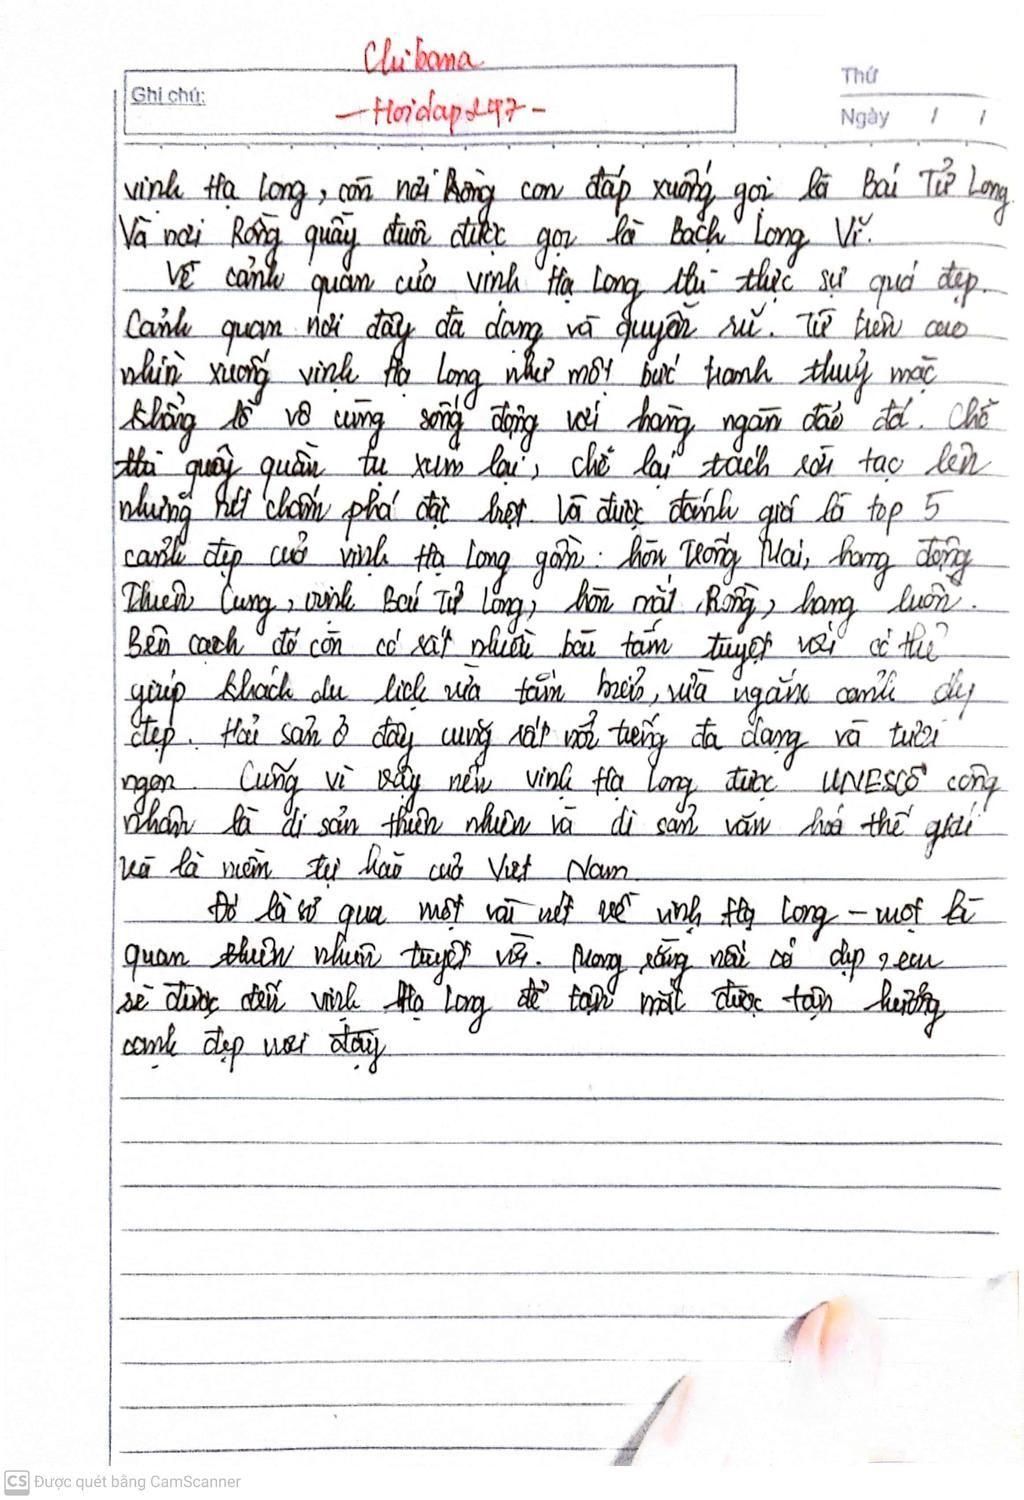 Chibana
Ghi chú:
-Hoidap247-
Thứ
Ngày / /
vịnh Hạ Long, còn nơi Rồng con đáp xuống gọi là Bái Tử Long
Và nơi Rồng quẫy đuôi được gọi là Bạch Long Vĩ.
Về cảnh quan của vịnh Hạ Long thì thực sự quá đẹp.
Cảnh quan nơi đây đa dạng và quyến rũ. Từ trên cao
nhìn xuống vịnh Hạ Long như một bức tranh thuỷ mặc
khổng lồ vô cùng sống động với hàng ngàn đảo đá. Chỗ
thì quây quần tụ xúm lại, chỗ lại tách rời tạo lên
những nét chấm phá đặc biệt. Và được đánh giá là top 5
cảnh đẹp của vịnh Hạ Long gồm: hòn Trống Mái, hang động
Thiên Cung, vịnh Bái Tử Long, hòn mắt Rồng, hang luồn.
Bên cạnh đó còn có rất nhiều bãi tắm tuyệt vời có thể
giúp khách du lịch vừa tắm biển, vừa ngắm cảnh
đẹp. Hải sản ở đây cũng rất nổi tiếng đa dạng và tươi
ngon. Cũng vì vậy nên vịnh Hạ Long được UNESCO công
nhận là di sản thiên nhiên và di sản văn hoá thế giới
và là niềm tự hào của Việt Nam.
Đó là sơ qua một vài nét về vịnh Hạ Long - một kì
quan thiên nhiên tuyệt vời. Mong rằng nếu có dịp, em
sẽ được đến vịnh Hạ Long để tận mắt được tận hưởng
cảnh đẹp nơi đây
CS Được quét bằng CamScanner